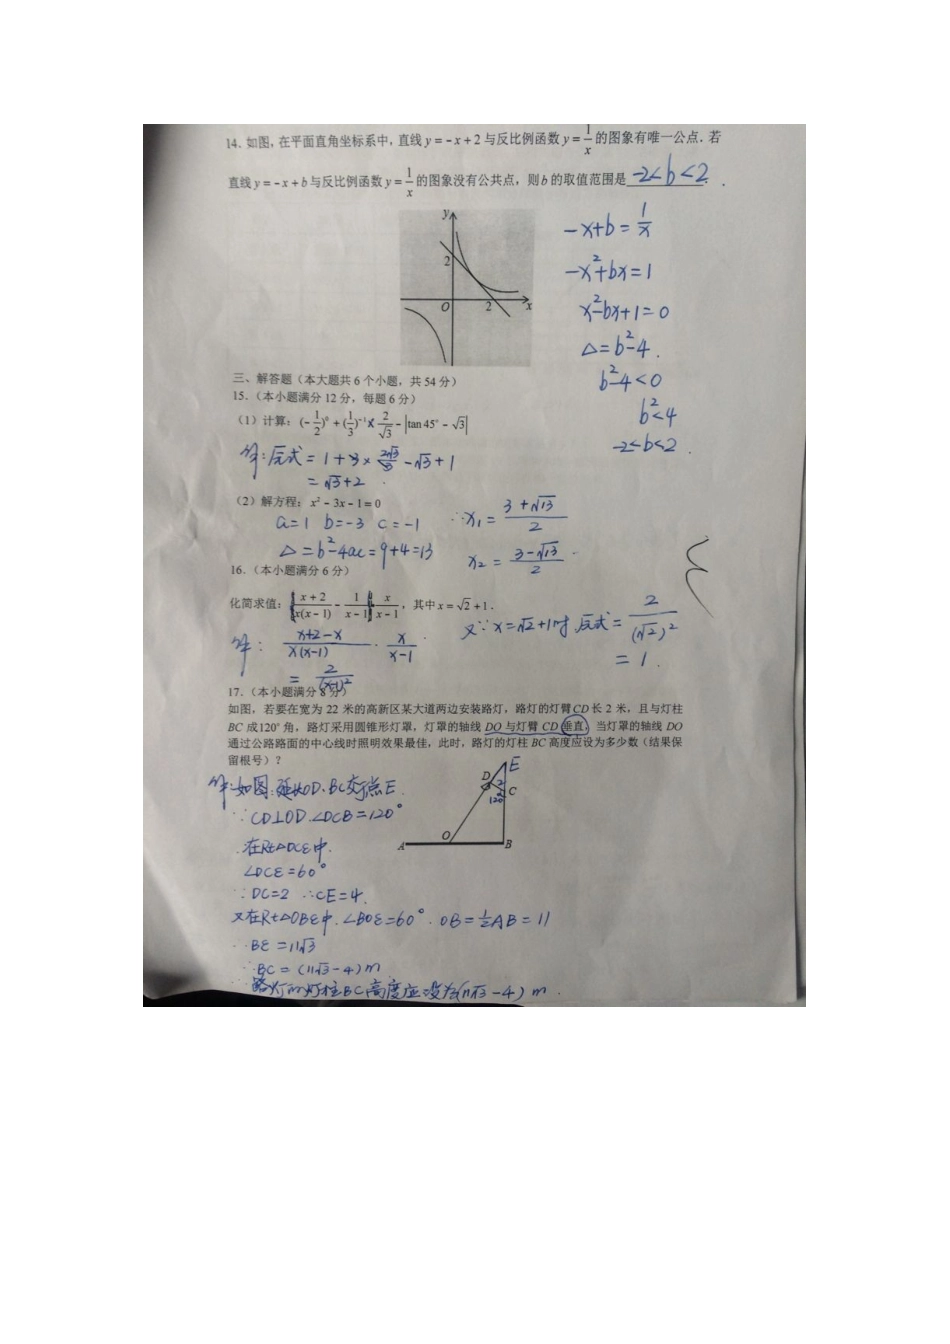 14. 如图，在平面直角坐标系中，直线 y = -x + 2 与反比例函数 y = 1/x 的图象有唯一公点．若
直线 y = -x + b 与反比例函数 y = 1/x 的图象没有公共点，则 b 的取值范围是 -2<b<2 .
y
2
O 2 x
-x+b = 1/x
-x²+bx=1
x²-bx+1=0
△=b²-4.
b²-4<0
b²<4
-2<b<2.
三、解答题（本大题共 6 个小题，共 54 分）
15.（本小题满分 12 分，每题 6 分）
（1）计算：(-1/2)⁰ + (1/3)⁻¹ × 2/√3 - |tan 45° - √3|
解：原式 = 1+3× 2√3/3 -√3+1
= √3+2.
（2）解方程：x² - 3x - 1 = 0
a=1 b=-3 c=-1
△=b²-4ac=9+4=13
∴x₁ = (3+√13)/2
x₂ = (3-√13)/2
16.（本小题满分 6 分）
化简求值：[(x+2)/(x(x-1)) - 1/(x-1)]·x/(x-1)，其中 x = √2 + 1．
解：(x+2-x)/(x(x-1)) · x/(x-1)
= 2/(x-1)²
又∵x=√2+1时,原式= 2/(√2)²
= 1.
17.（本小题满分 8 分）
如图，若要在宽为 22 米的高新区某大道两边安装路灯，路灯的灯臂 CD 长 2 米，且与灯柱
BC 成 120° 角，路灯采用圆锥形灯罩，灯罩的轴线 DO 与灯臂 CD 垂直，当灯罩的轴线 DO
通过公路路面的中心线时照明效果最佳，此时，路灯的灯柱 BC 高度应设为多少数（结果保
留根号）？
E
D 2
C
120°
O
A B
解：如图：延长OD、BC交点E.
∵CD⊥OD.∠DCB=120°
在Rt△DCE中.
∠DCE=60°
∵DC=2 ∴CE=4.
又在Rt△OBE中.∠BOE=60°. OB=½AB=11
∴BE=11√3
∴BC=(11√3-4)m
∴路灯的灯柱BC高度应设为(11√3-4)m.